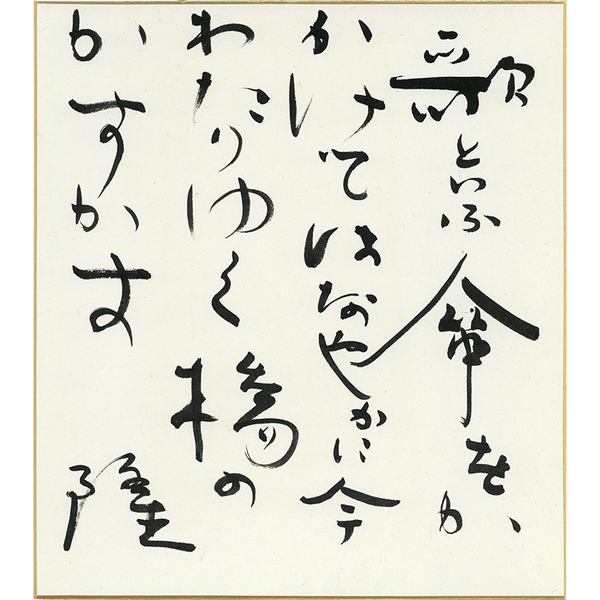 歌といふ傘をか
かけてはなやかに今
わたりゆく橋の
かすかす
隆